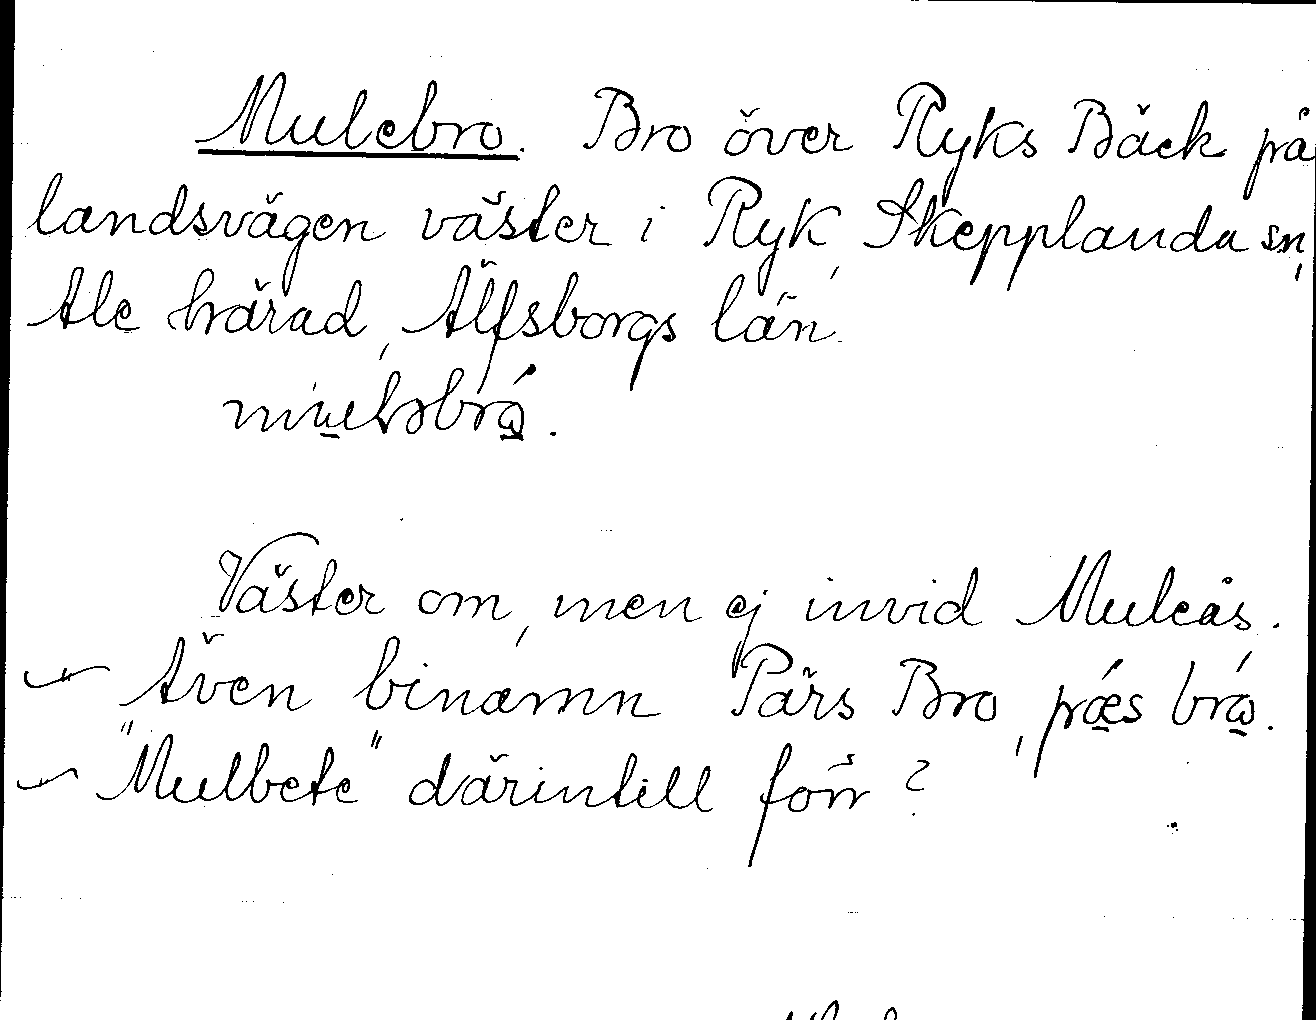 Mulebro. Bro över Ryks Bäck på
landsvägen väster i Ryk, Skepplanda sn,
Ale härad, Älfsborgs län.
Väster om, men ej invid Muleås.
Även binamn Pärs Bro, pǽs brω.
"Mulbete" därintill förr?